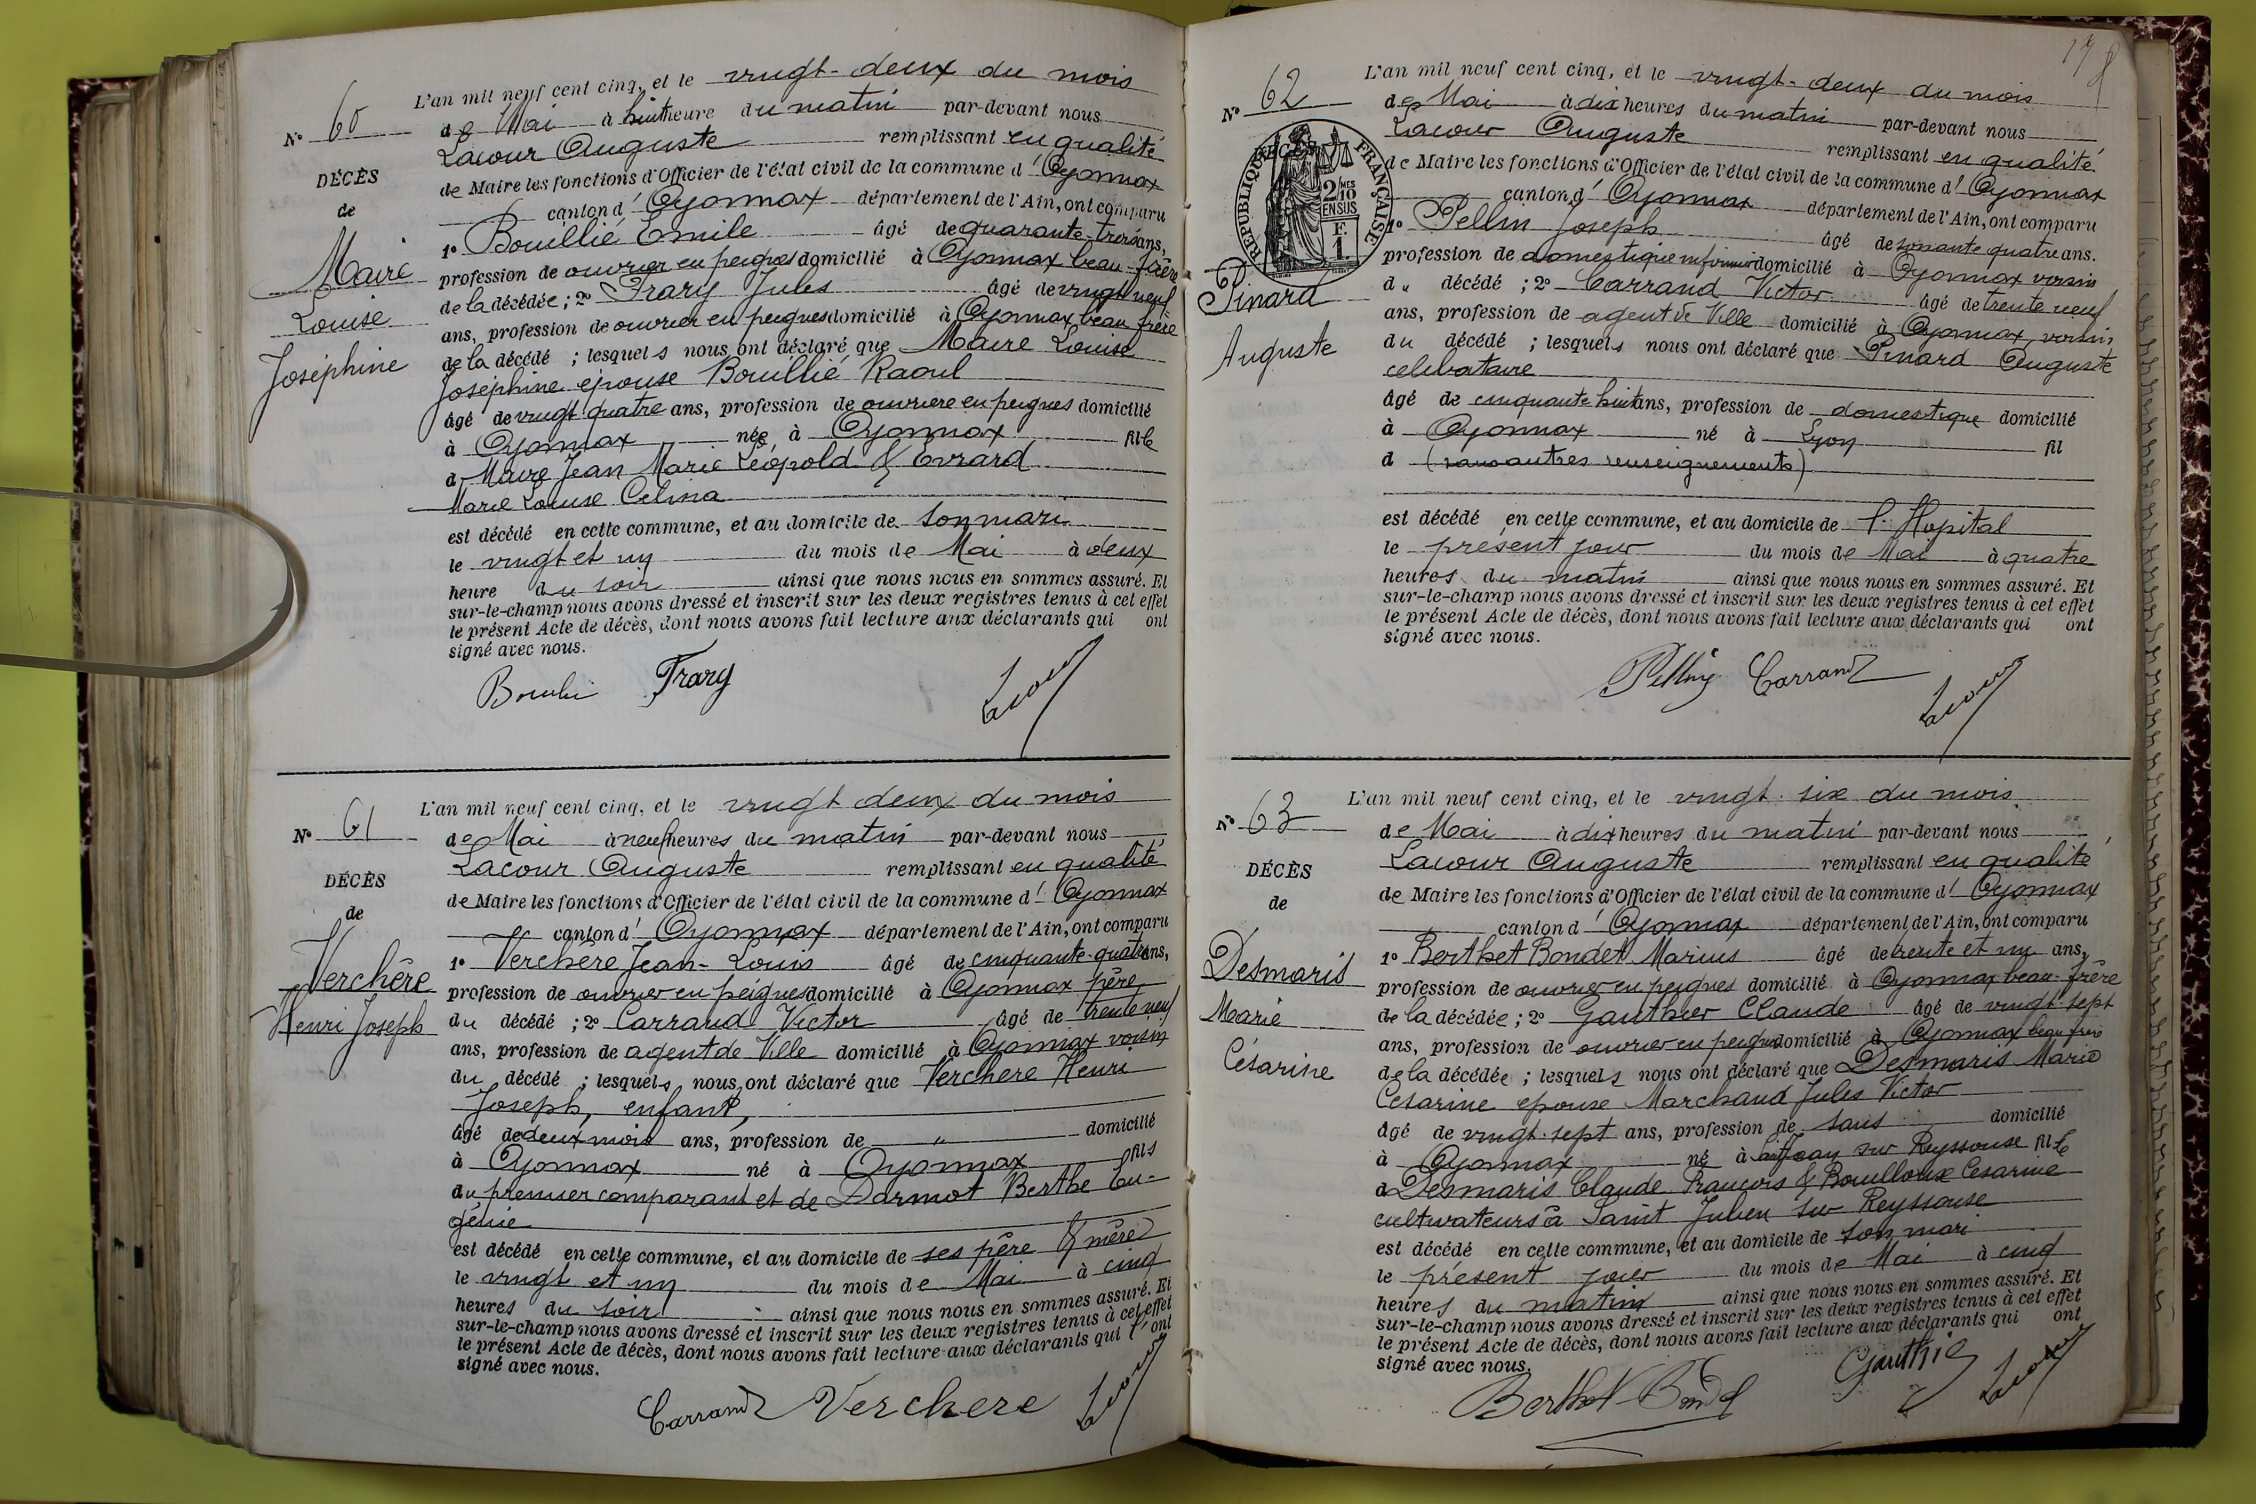 N° 60
DÉCÈS
de
Maire
Louise
Joséphine
L'an mil neuf cent cinq, et le vingt-deux du mois
de Mai à huit heure du matin par-devant nous
Lacour Auguste remplissant en qualité
de Maire les fonctions d'Officier de l'état civil de la commune d'Oyonnax
canton d'Oyonnax département de l'Ain, ont comparu
1° Bouillié Emile âgé de quarante-trois ans,
profession de ouvrier en peignes domicilié à Oyonnax beau-frère
de la décédée ; 2° Frary Jules âgé de vingt neuf
ans, profession de ouvrier en peignes domicilié à Oyonnax beau frère
de la décédé ; lesquels nous ont déclaré que Maire Louise
Joséphine épouse Bouillié Raoul
âgé de vingt quatre ans, profession de ouvrière en peignes domicilié
à Oyonnax née à Oyonnax fille
d Maire Jean Marie Léopold & Evrard
Marie Louise Celina
est décédé en cette commune, et au domicile de son mari
le vingt et un du mois de Mai à deux
heure du soir ainsi que nous nous en sommes assuré. Et
sur-le-champ nous avons dressé et inscrit sur les deux registres tenus à cet effet
le présent Acte de décès, dont nous avons fait lecture aux déclarants qui ont
signé avec nous.
Frary Lacour
N° 61
DÉCÈS
de
Verchère
Henri Joseph
L'an mil neuf cent cinq, et le vingt deux du mois
de Mai à neuf heures du matin par-devant nous
Lacour Auguste remplissant en qualité
de Maire les fonctions d'Officier de l'état civil de la commune d'Oyonnax
canton d'Oyonnax département de l'Ain, ont comparu
1° Verchère Jean-Louis âgé de cinquante-quatre ans,
profession de ouvrier en peignes domicilié à Oyonnax père
du décédé ; 2° Carrand Victor âgé de trente neuf
ans, profession de agent de Ville domicilié à Oyonnax voisin
du décédé ; lesquels nous ont déclaré que Verchère Henri
Joseph, enfant,
âgé de deux mois ans, profession de " domicilié
à Oyonnax né à Oyonnax fils
du premier comparant et de Darmot Berthe Eu-
génie
est décédé en cette commune, et au domicile de ses père & mère
le vingt et un du mois de Mai à cinq
heures du soir ainsi que nous nous en sommes assuré. Et
sur-le-champ nous avons dressé et inscrit sur les deux registres tenus à cet effet
le présent Acte de décès, dont nous avons fait lecture aux déclarants qui l'ont
signé avec nous.
Carrand Verchere Lacour
178
N° 62
DÉCÈS
RÉPUBLIQUE FRANÇAISE
2 MES
10
EN SUS
1 F.
Pinard
Auguste
L'an mil neuf cent cinq, et le vingt-deux du mois
de Mai à dix heures du matin par-devant nous
Lacour Auguste remplissant en qualité
de Maire les fonctions d'Officier de l'état civil de la commune d'Oyonnax
canton d'Oyonnax département de l'Ain, ont comparu
1° Pellin Joseph âgé de soixante quatre ans.
profession de domestique infirmier domicilié à Oyonnax voisin
du décédé ; 2° Carrand Victor âgé de trente neuf
ans, profession de agent de Ville domicilié à Oyonnax, voisin
du décédé ; lesquels nous ont déclaré que Pinard Auguste
celibataire
âgé de cinquante huit ans, profession de domestique domicilié
à Oyonnax né à Lyon fil
d (sans autres renseignements)
est décédé en cette commune, et au domicile de l'Hopital
le présent jour du mois de Mai à quatre
heures du matin ainsi que nous nous en sommes assuré. Et
sur-le-champ nous avons dressé et inscrit sur les deux registres tenus à cet effet
le présent Acte de décès, dont nous avons fait lecture aux déclarants qui ont
signé avec nous.
Pellin Carrand Lacour
N° 63
DÉCÈS
de
Desmaris
Marie
Césarine
L'an mil neuf cent cinq, et le vingt-six du mois
de Mai à dix heures du matin par-devant nous
Lacour Auguste remplissant en qualité
de Maire les fonctions d'Officier de l'état civil de la commune d'Oyonnax
canton d'Oyonnax département de l'Ain, ont comparu
1° Berthet Bondet Marius âgé de trente et un ans,
profession de ouvrier en peignes domicilié à Oyonnax beau-frère
de la décédée ; 2° Gauthier Claude âgé de vingt-sept
ans, profession de ouvrier en peignes domicilié à Oyonnax beau frère
de la décédée ; lesquels nous ont déclaré que Desmaris Marie
Césarine épouse Marchand Jules Victor
âgé de vingt-sept ans, profession de sans domicilié
à Oyonnax né à St Jean sur Reyssouse fille
d Desmaris Claude François & Bouilloux Césarine
cultivateurs à Saint Julien sur Reyssouse
est décédé en cette commune, et au domicile de son mari
le présent jour du mois de Mai à cinq
heures du matin ainsi que nous nous en sommes assuré. Et
sur-le-champ nous avons dressé et inscrit sur les deux registres tenus à cet effet
le présent Acte de décès, dont nous avons fait lecture aux déclarants qui ont
signé avec nous.
Berthet Bondet Gauthier Lacour